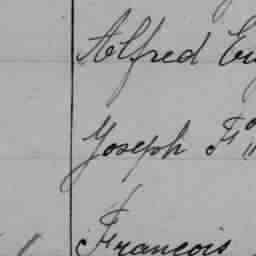 Alfred
Joseph
François